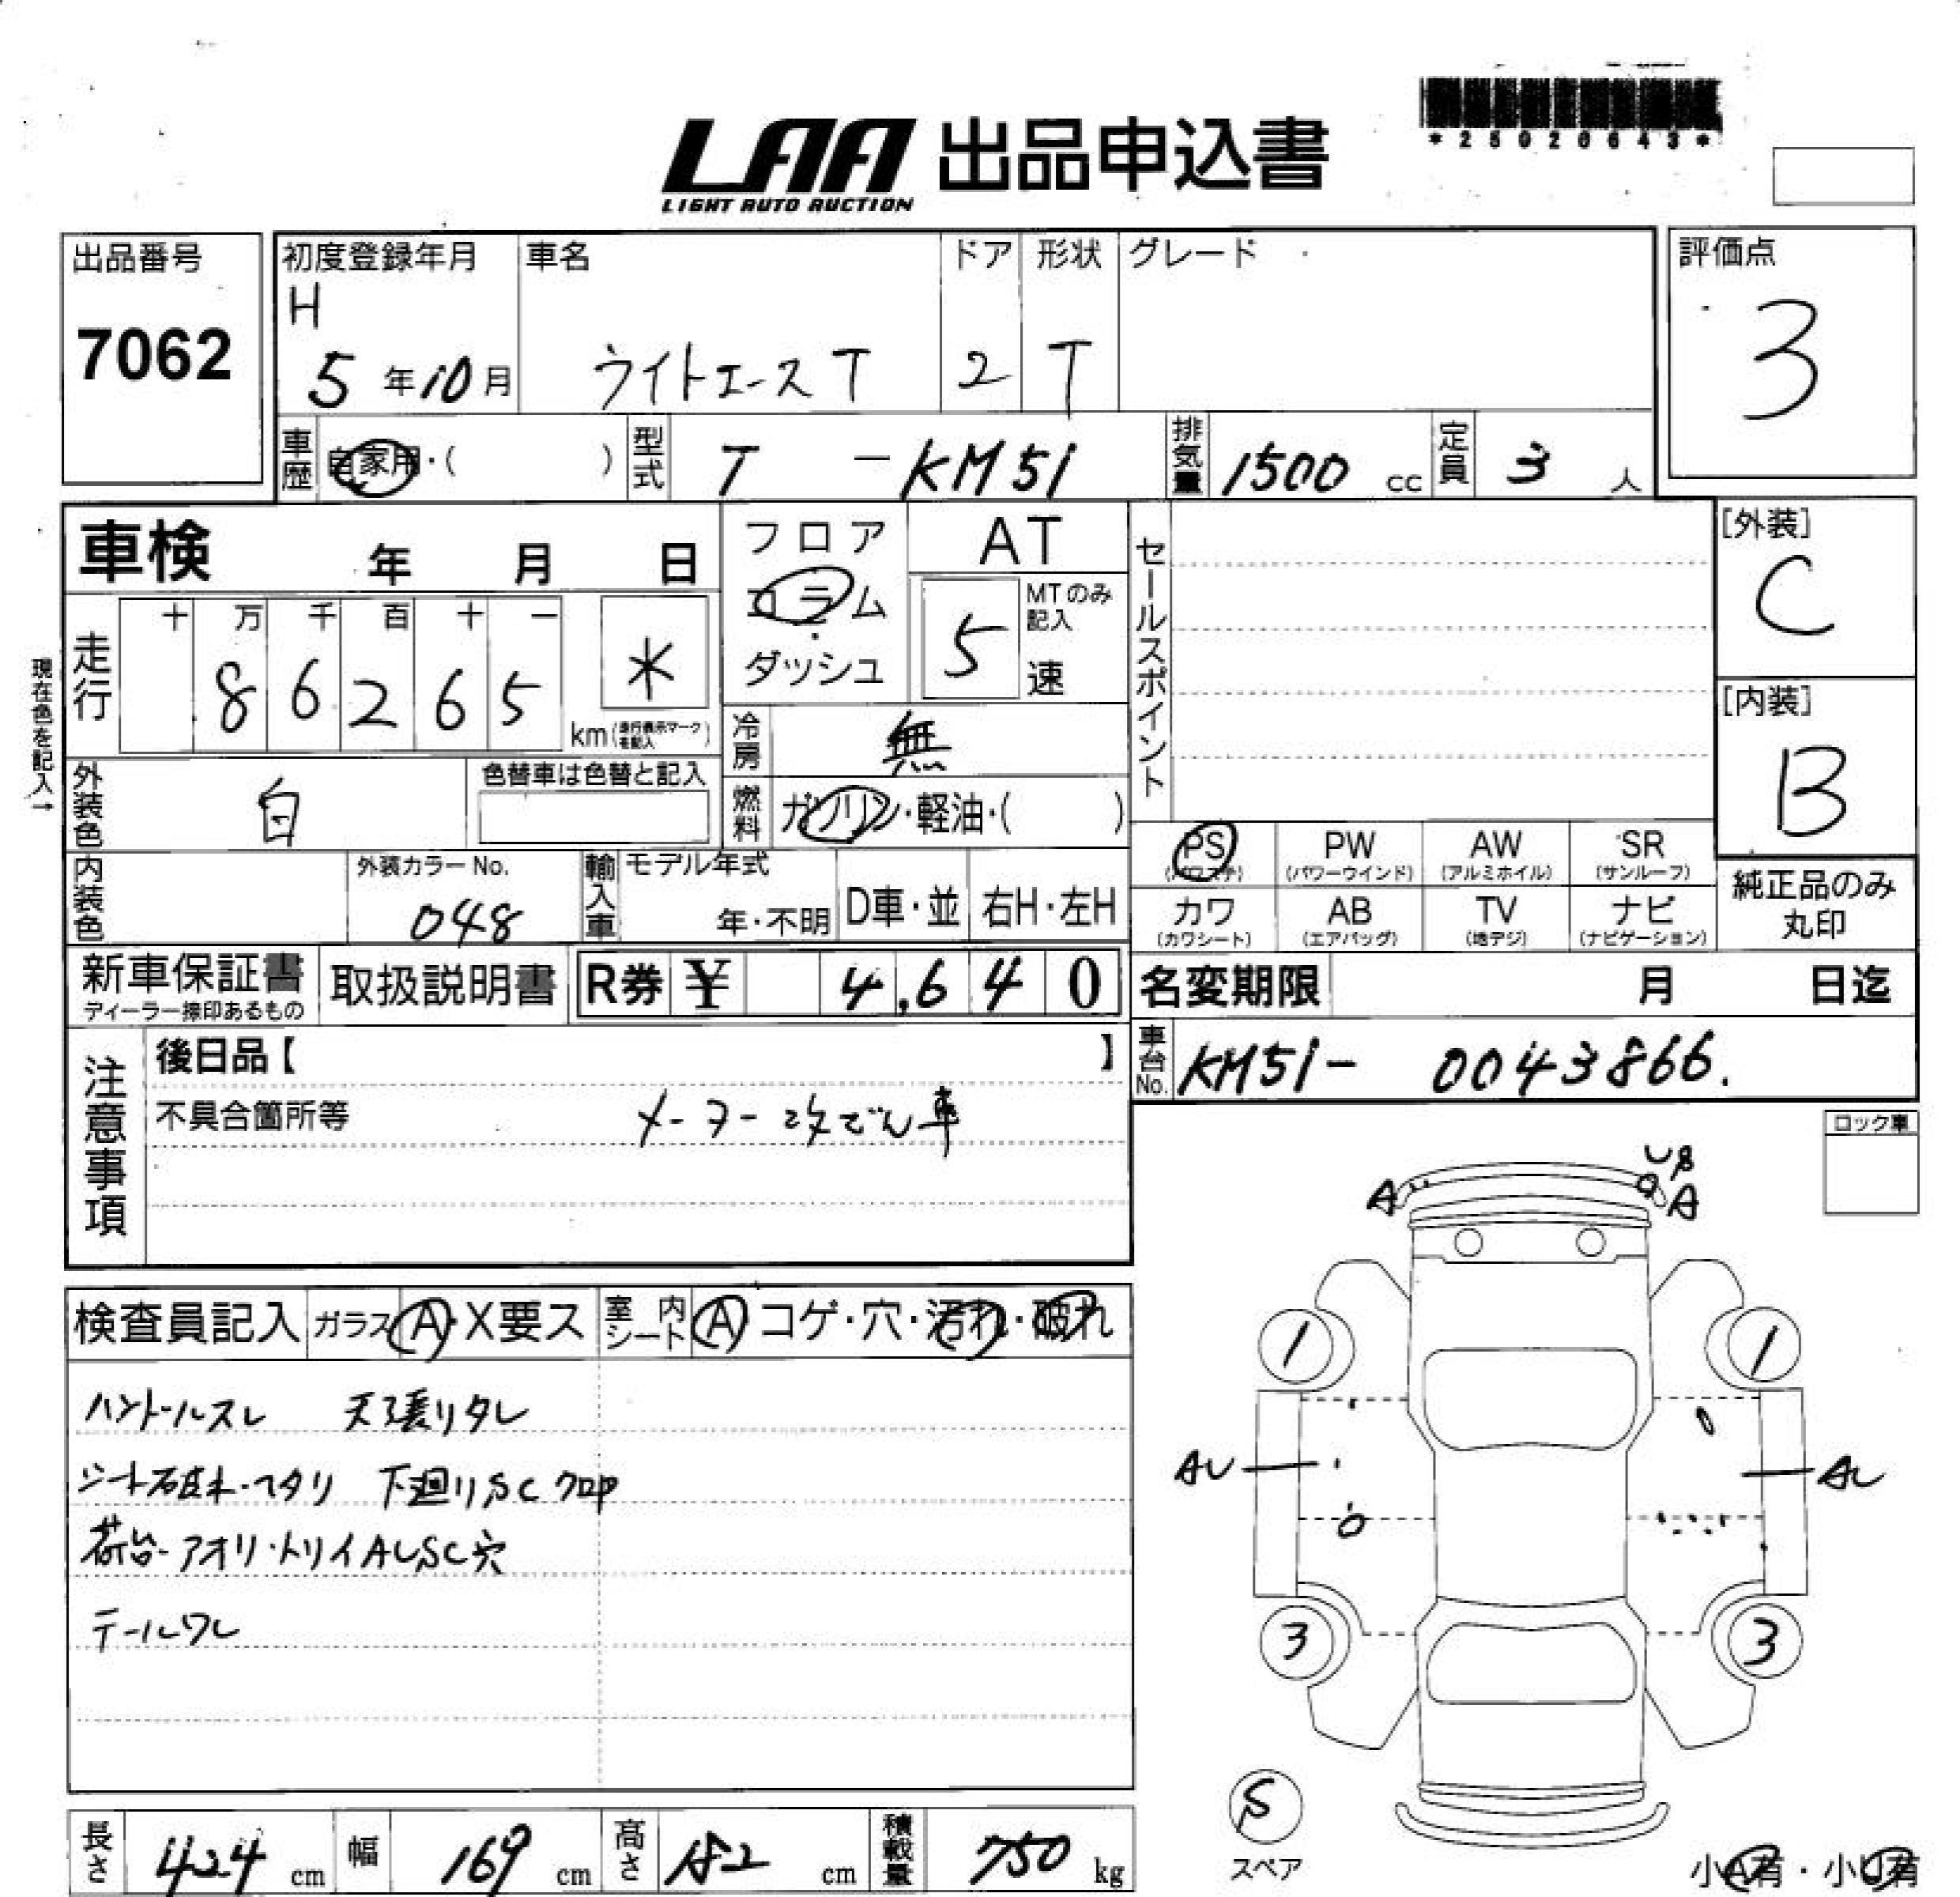 LAA 出品申込書
LIGHT AUTO AUCTION
*25020643*
出品番号
7062
初度登録年月
H
5年10月
車名
ライトエースT
ドア
2
形状
T
グレード
評価点
3
車歴
自家用・( )
型式
T - KM51
排気量
1500 cc
定員
3 人
車検 年 月 日
フロア
コラム
ダッシュ
AT
MTのみ記入
5 速
セールスポイント
[外装]
C
[内装]
B
現在色を記入→
走行
十 万 千 百 十 一
8 6 2 6 5
*
km(走行表示マークを記入)
冷房
無
燃料
ガソリン・軽油・( )
外装色
白
色替車は色替と記入
内装色
外装カラーNo.
048
輸入車
モデル年式
年・不明
D車・並
右H・左H
PS
(パワステ)
PW
(パワーウインド)
AW
(アルミホイル)
SR
(サンルーフ)
カワ
(カワシート)
AB
(エアバッグ)
TV
(地デジ)
ナビ
(ナビゲーション)
純正品のみ
丸印
新車保証書
ディーラー捺印あるもの
取扱説明書
R券 ¥ 4,640
名変期限 月 日迄
車台No.
KM51- 0043866.
注意事項
後日品【 】
不具合箇所等
メーター改ざん車
ロック車
A
US
A
検査員記入
ガラス
A・X要ス
室内シート
A コゲ・穴・汚れ・破れ
ハンドルスレ 天張りタレ
シート破れ・ヘタリ 下廻りSC
荷台・アオリ・トリイAUSC穴
テールワレ
1
1
AU
AU
3
3
S
スペア
小A有・小U有
長さ
424 cm
幅
169 cm
高さ
182 cm
積載量
750 kg